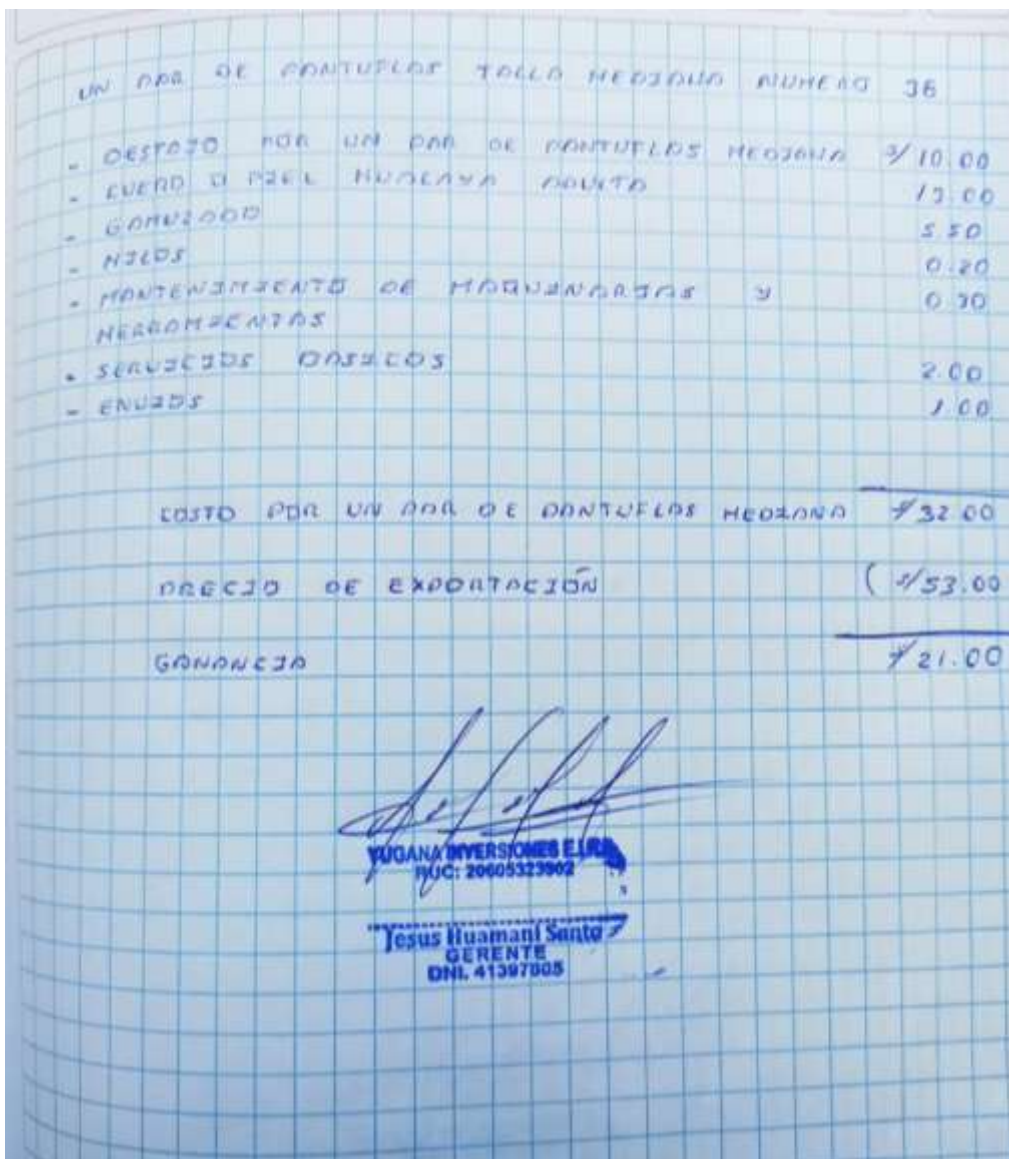 UN PAR DE PANTUFLAS TALLA MEDIANA NUMERO 36
- DESTAJO POR UN PAR DE PANTUFLAS MEDIANA S/ 10.00
- CUERO O PIEL HUACAYA 13.00
- GAMUZADO 5.50
- HILOS 0.20
- MANTENIMIENTO DE MAQUINARIAS Y 0.30
HERRAMIENTAS
- SERVICIOS BASICOS 2.00
- ENVIOS 1.00
COSTO POR UN PAR DE PANTUFLAS MEDIANA S/ 32.00
PRECIO DE EXPORTACIÓN ( S/ 53.00
GANANCIA S/ 21.00
YUGANA INVERSIONES E.I.R.L
RUC: 20605323902
Jesus Huamani Santo
GERENTE
DNI. 41397805